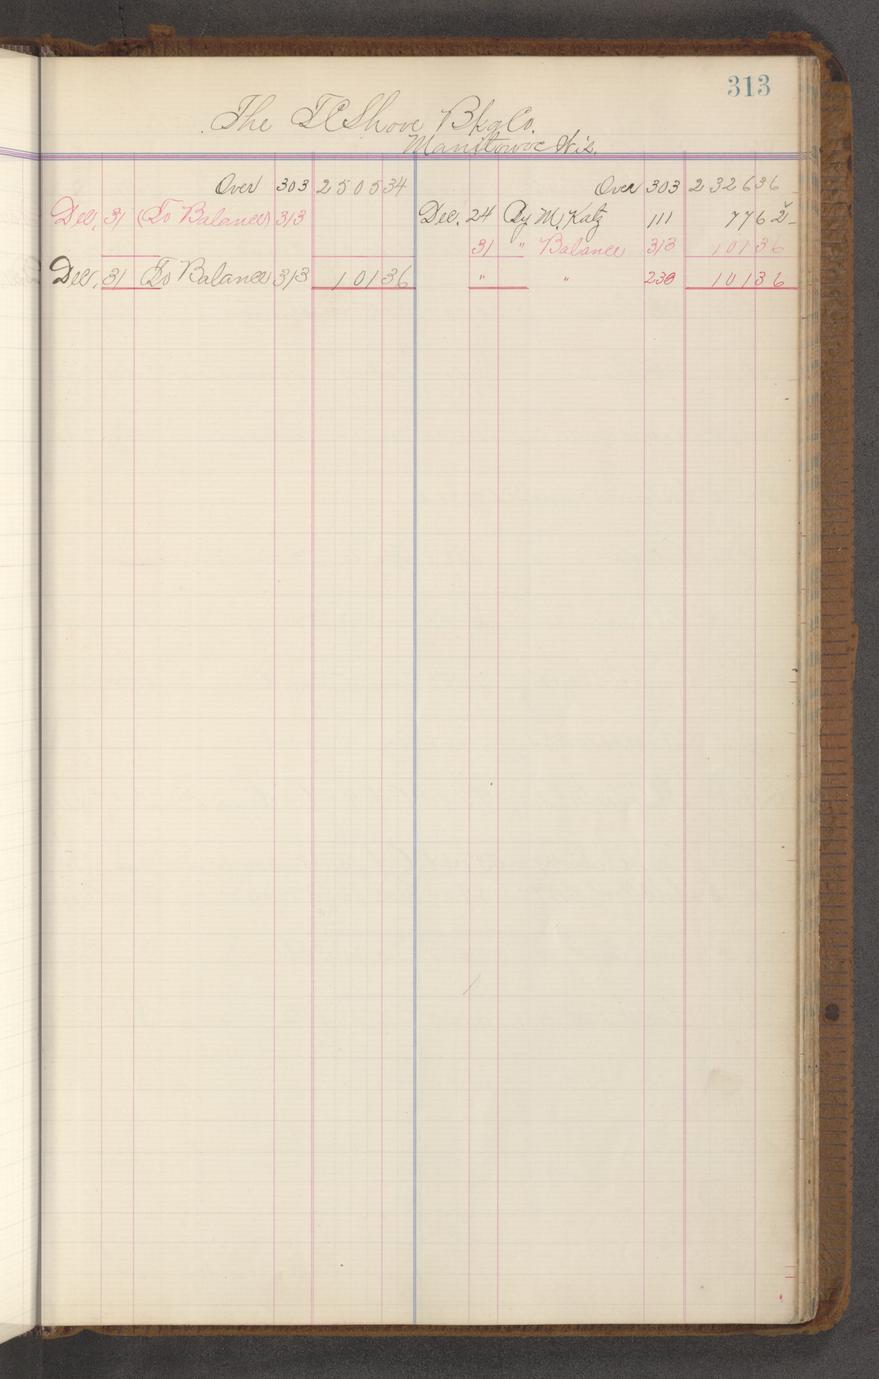 313
The T C Shove Bkg Co.
Manitowoc Wis.
Over 303 250534 Over 303 232636
Dec. 31 (To Balance) 313 Dec. 24 By M. Katz 111 7762-
31 " Balance 313 10136
Dec. 31 To Balance 313 10136 " " 230 10136